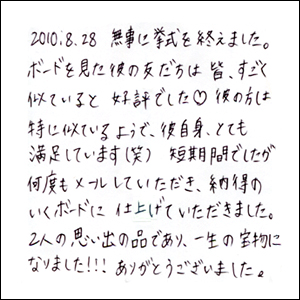 2010.8.28 無事に挙式を終えました。
ボードを見た彼の友だちは 皆、すごく
似ていると 好評でした♡ 彼の方は
特に似ているようで、彼自身、とても
満足しています(笑) 短期間でしたが
何度もメールしていただき、納得の
いくボードに 仕上げていただきました。
2人の思い出の品であり、一生の宝物に
なりました!!! ありがとうございました。